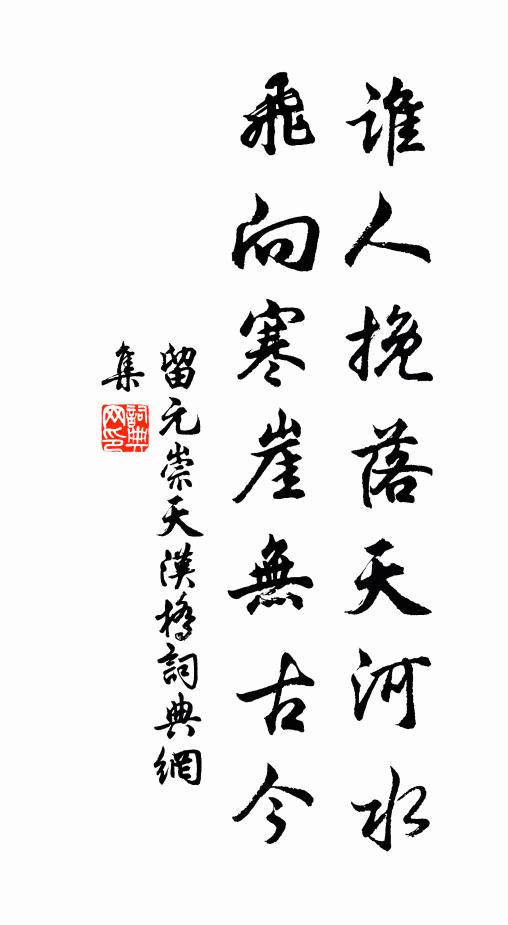 誰人挽落天河水
飛向寒崖無古今
留元崇天漢橋詞典網
集
詞典
网印